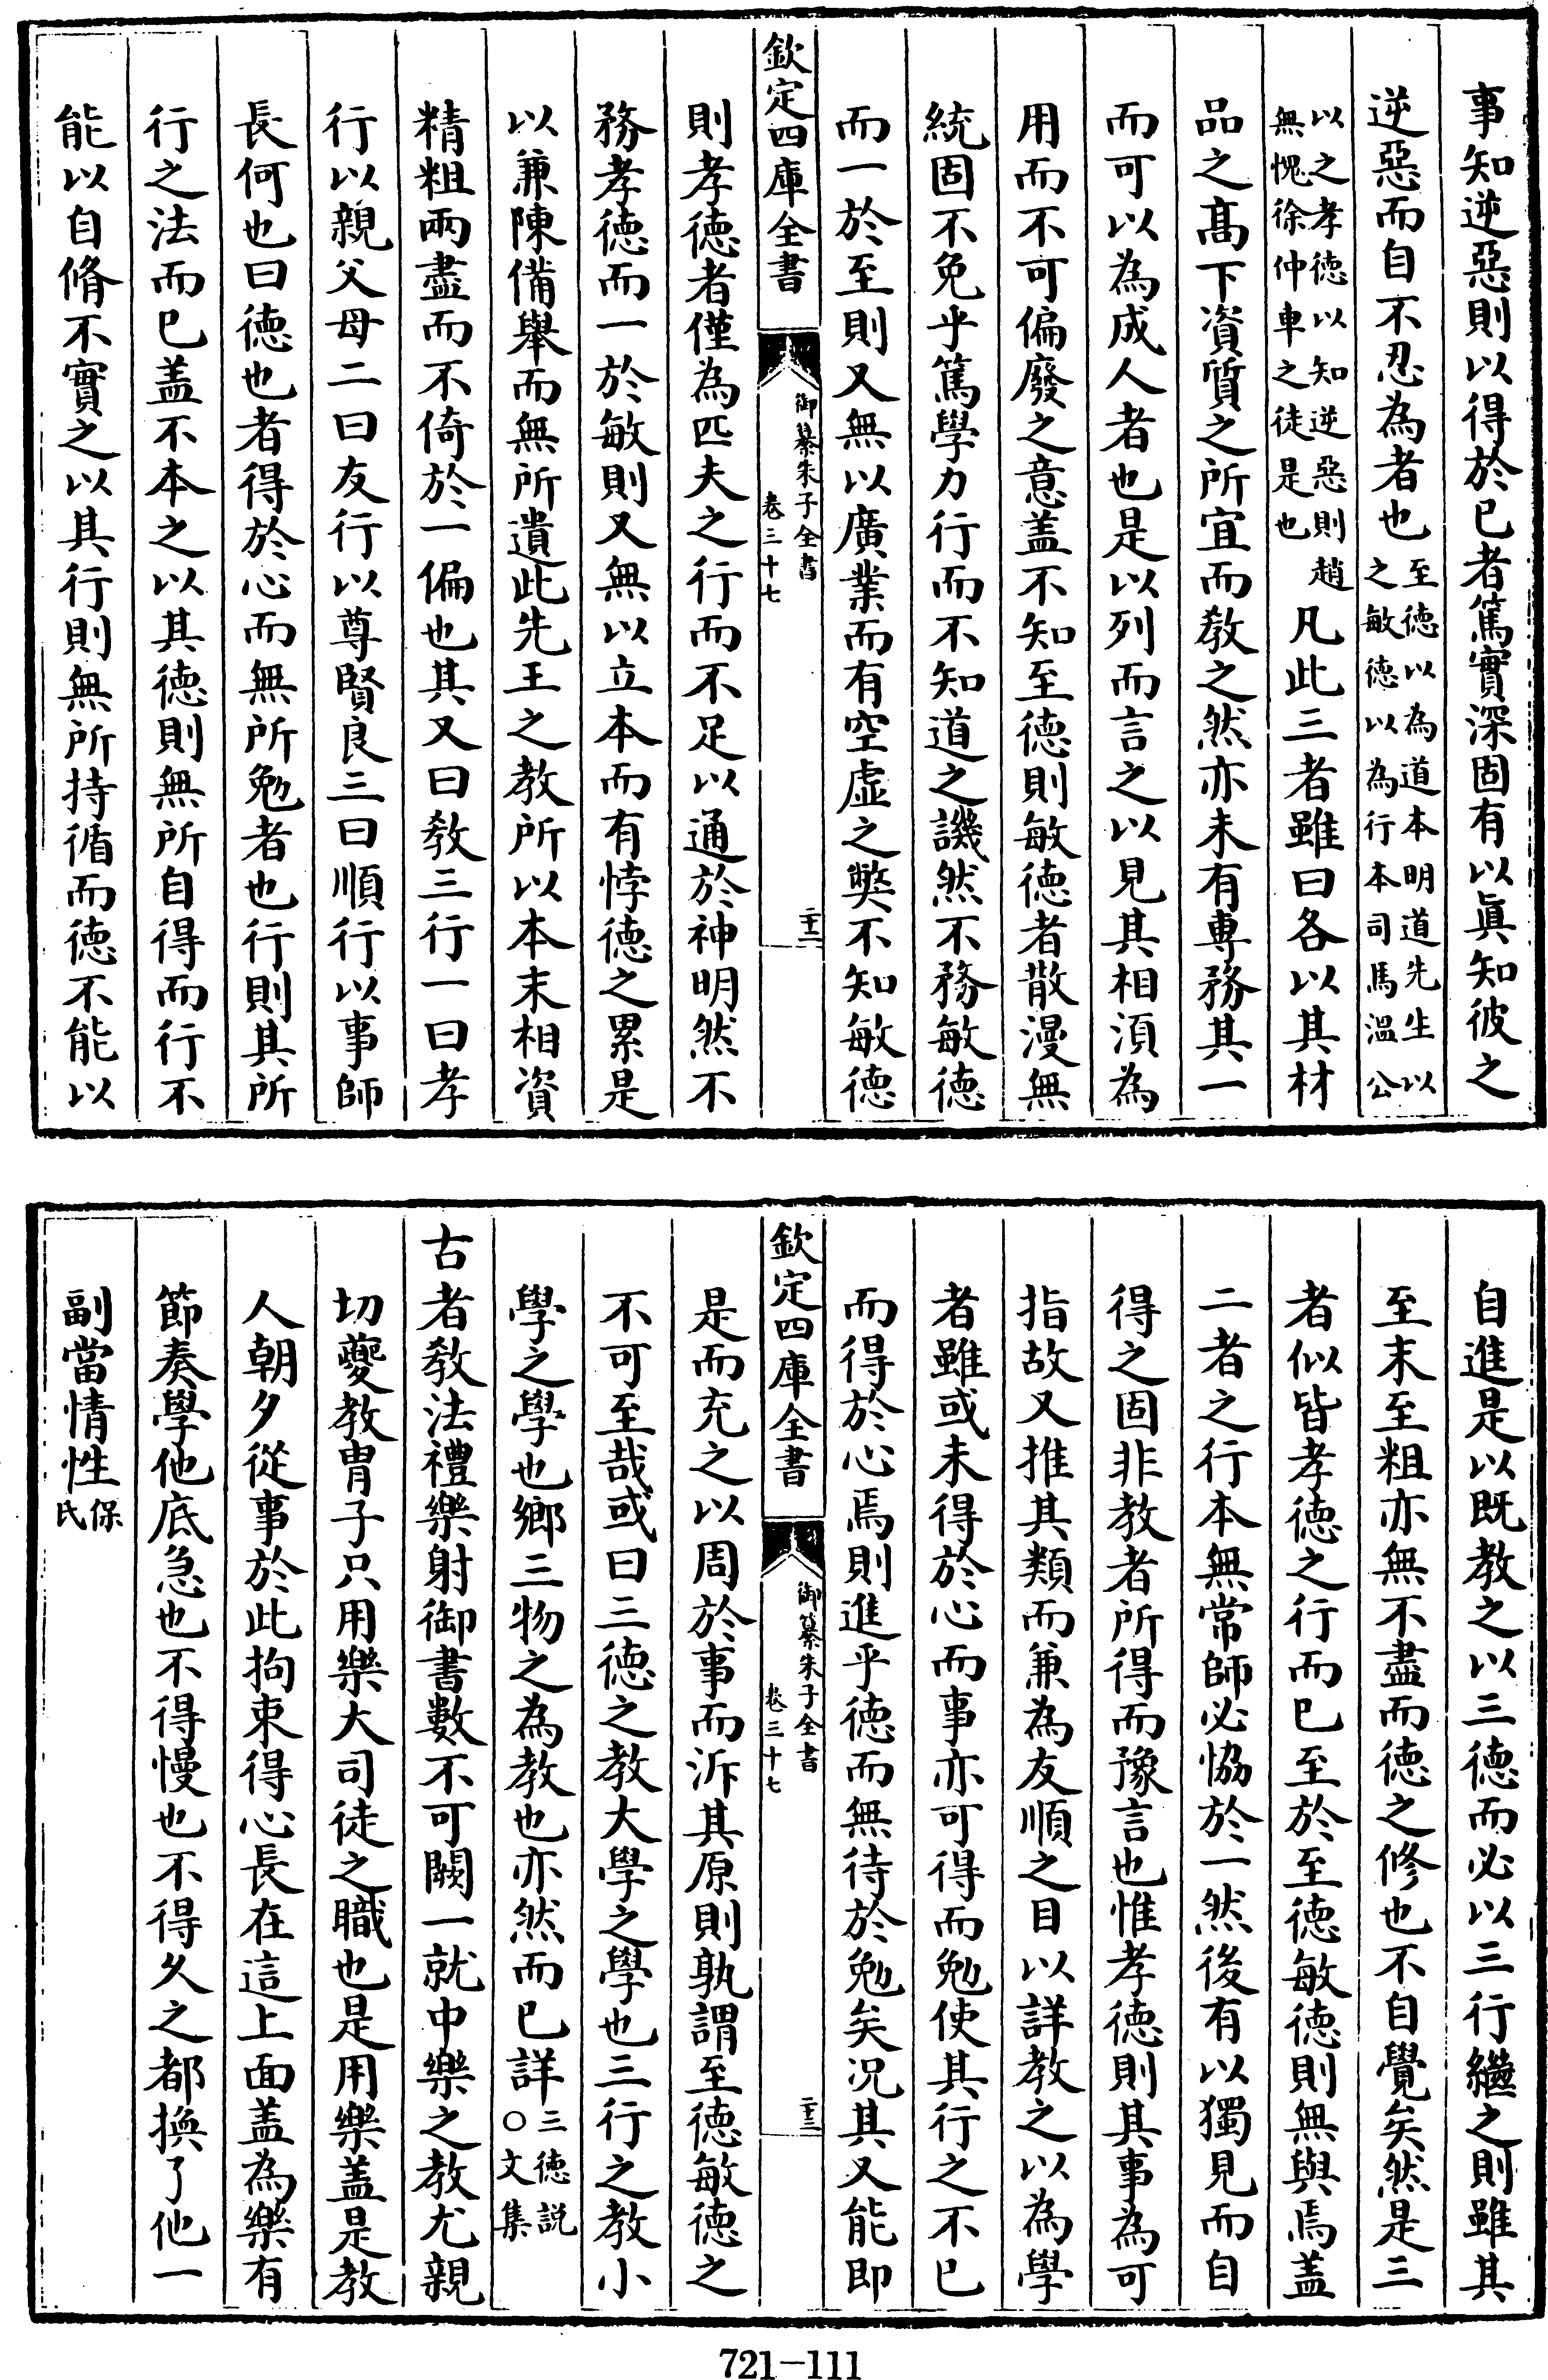 事知逆惡則以得於已者篤實深固有以眞知彼之
逆惡而自不忍為者也至徳以為道本明道先生以
之敏徳以為行本司馬溫公
以之孝徳以知逆惡則趙
無愧徐仲車之徒是也
凡此三者雖曰各以其材
品之髙下資質之所宜而敎之然亦未有專務其一
而可以為成人者也是以列而言之以見其相湏為
用而不可偏廢之意盖不知至徳則敏徳者散漫無
統固不免乎篤學力行而不知道之譏然不務敏徳
而一於至則又無以廣業而有空虛之獘不知敏徳
欽定四庫全書
御纂朱子全書
卷三十七
二十二
則孝徳者僅為匹夫之行而不足以通於神明然不
務孝徳而一於敏則又無以立本而有悖徳之累是
以兼陳備舉而無所遺此先王之教所以本末相資
精粗兩盡而不倚於一偏也其又曰敎三行一曰孝
行以親父母二曰友行以尊賢良三曰順行以事師
長何也曰徳也者得於心而無所勉者也行則其所
行之法而巳盖不本之以其徳則無所自得而行不
能以自脩不實之以其行則無所持循而徳不能以
自進是以既教之以三徳而必以三行繼之則雖其
至末至粗亦無不盡而徳之修也不自覺矣然是三
者似皆孝徳之行而巳至於至徳敏徳則無與焉盖
二者之行本無常師必恊於一然後有以獨見而自
得之固非教者所得而豫言也惟孝徳則其事為可
指故又推其類而兼為友順之目以詳教之以為學
者雖或未得於心而事亦可得而勉使其行之不已
而得於心焉則進乎徳而無待於勉矣况其又能即
欽定四庫全書
御纂朱子全書
卷三十七
二十三
是而充之以周於事而泝其原則孰謂至徳敏徳之
不可至哉或曰三徳之教大學之學也三行之教小
學之學也鄉三物之為教也亦然而巳詳三徳説
○文集
古者敎法禮樂射御書數不可闕一就中樂之教尤親
切夔教胄子只用樂大司徒之職也是用樂盖是教
人朝夕從事於此拘束得心長在這上面盖為樂有
節奏學他底急也不得慢也不得久之都換了他一
副當情性保
氏
721-111